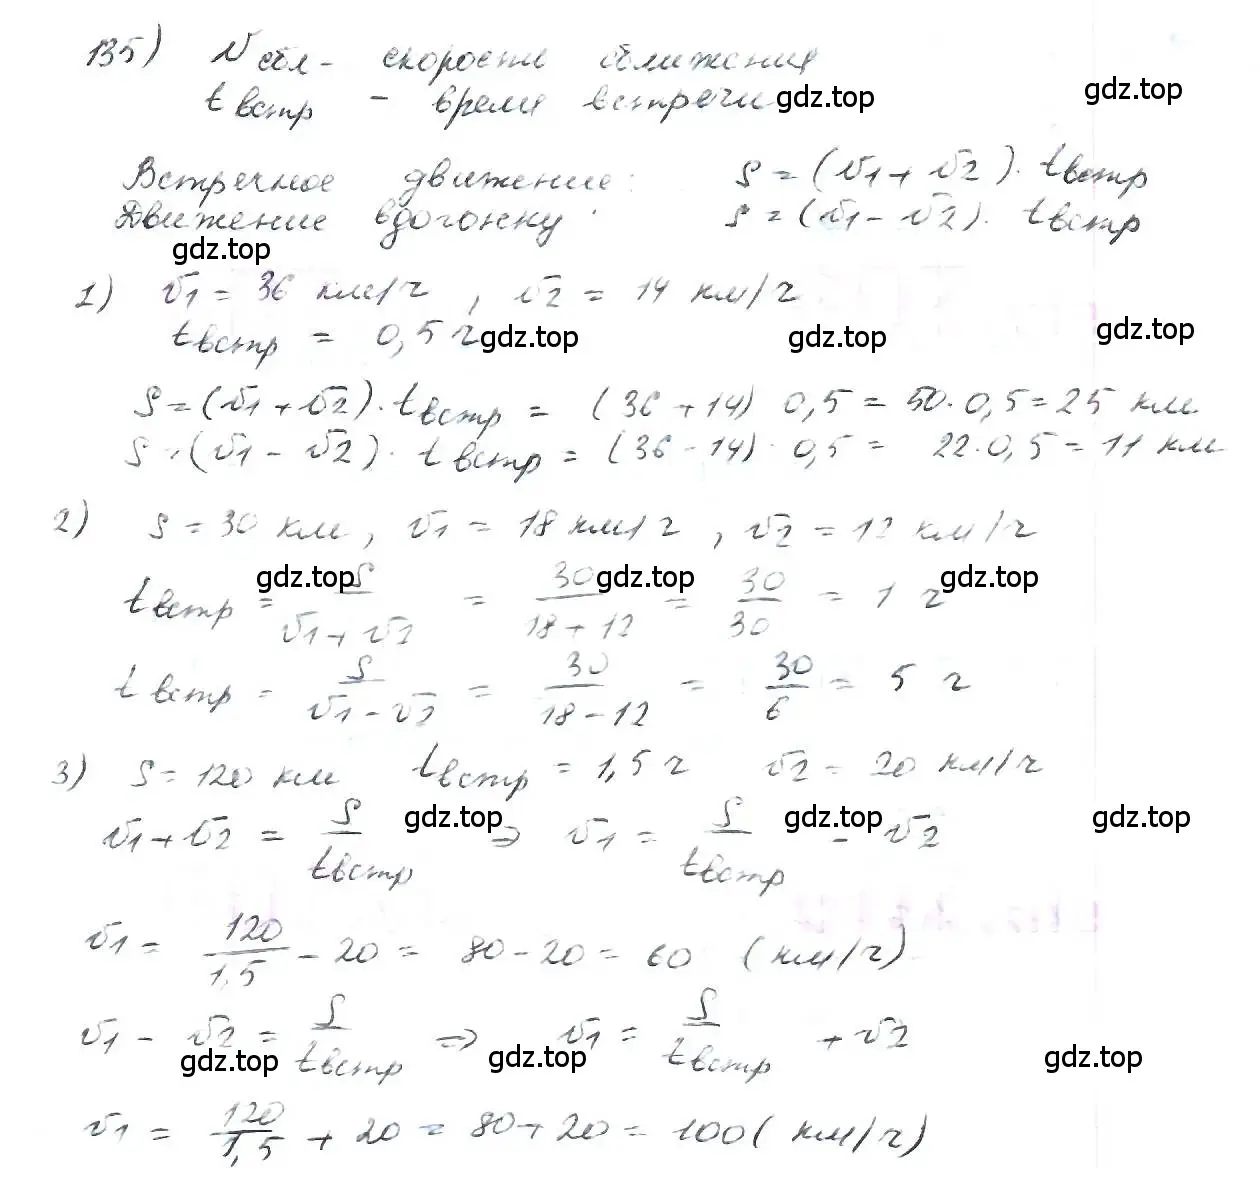 135) V сбл - скорость сближения
t встр - время встречи gdz.top gdz.top
Встречное движение: S = (V1 + V2) · t встр
Движение вдогонку: S = (V1 - V2) · t встр
gdz.top
1) V1 = 36 км/ч, V2 = 14 км/ч
t встр = 0,5 ч gdz.top gdz.top gdz.top
S = (V1 + V2) · t встр = (36 + 14) 0,5 = 50 · 0,5 = 25 км
S = (V1 - V2) · t встр = (36 - 14) · 0,5 = 22 · 0,5 = 11 км
2) S = 30 км, V1 = 18 км/ч, V2 = 12 км/ч
gdz.top gdz.top gdz.top
t встр = S/(V1 + V2) = 30/(18 + 12) = 30/30 = 1 ч
t встр = S/(V1 - V2) = 30/(18 - 12) = 30/6 = 5 ч
3) S = 120 км t встр = 1,5 ч V2 = 20 км/ч
V1 + V2 = S/t встр ⇒ V1 = S/t встр - V2
gdz.top gdz.top gdz.top
V1 = 120/1,5 - 20 = 80 - 20 = 60 (км/ч)
V1 - V2 = S/t встр ⇒ V1 = S/t встр + V2
gdz.top gdz.top gdz.top
V1 = 120/1,5 + 20 = 80 + 20 = 100 (км/ч)